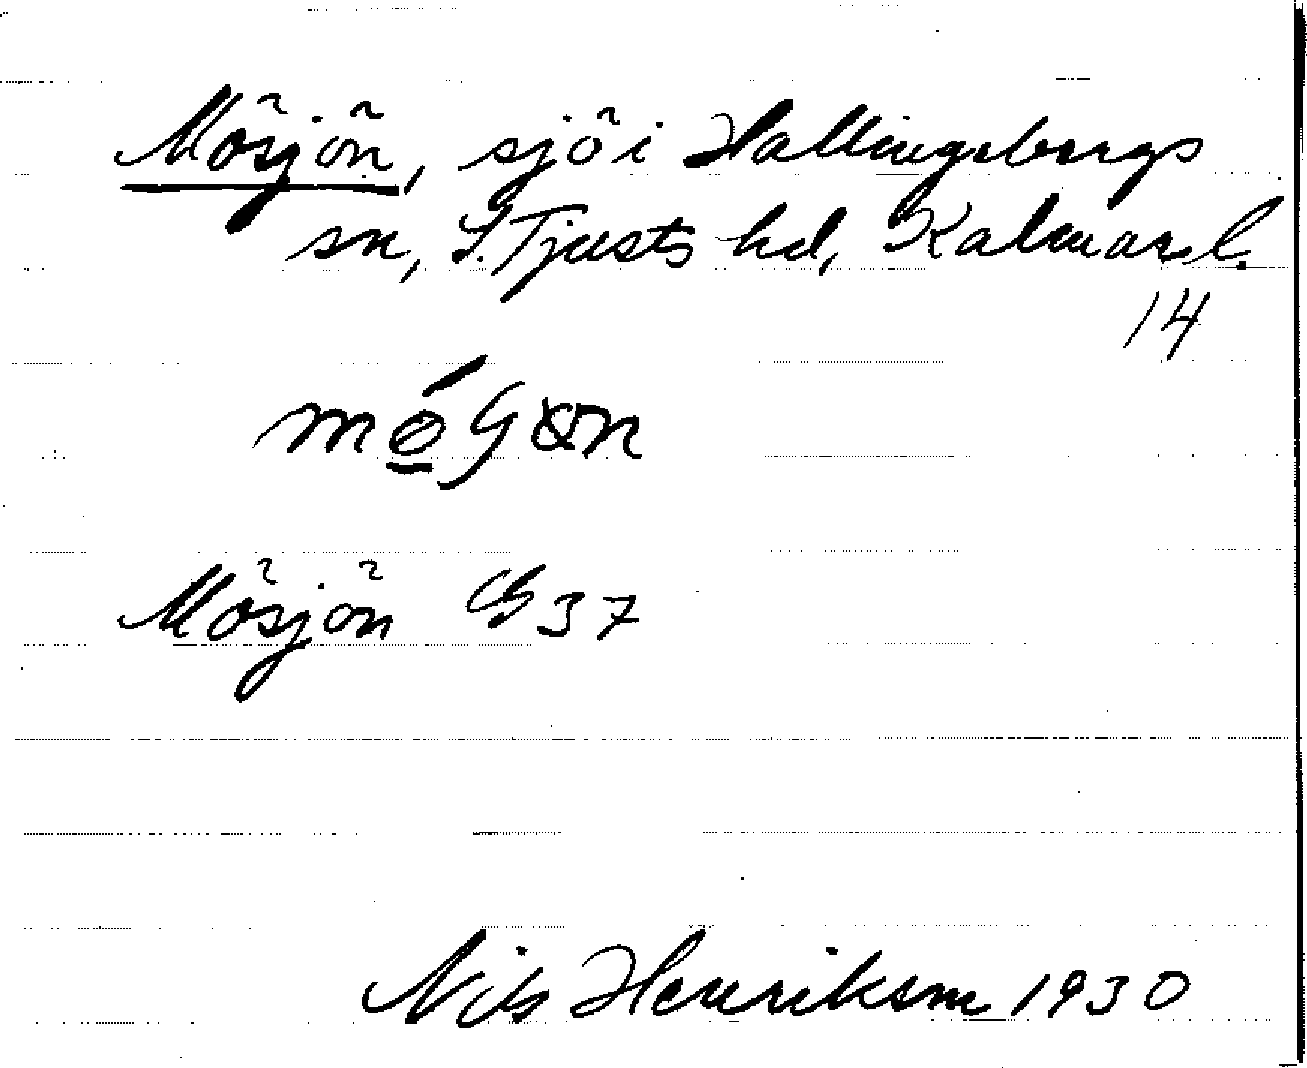 Mösjön, sjö i Hallingebergs
sn, S. Tjusts hd, Kalmar l.
14
Mösjön G 37
Nils Henrikson 1930